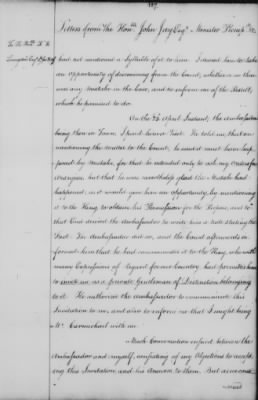 Letters from The Honble. John Jay Esqr. Minister Plenipo: &c.
had not mentioned a Syllable of it to him I should have to take
an opportunity of discovering from the Court, whether or no there
was any mistake in the Case, and to inform me of the Result,
which he promised to do.
On the 26 April Instant, the Ambassador
being then in Town, I paid him a Visit. He told me, that on
mentioning the matter to the Count, he said it must have hap-
pened by mistake for that he intended only to ask my orders for
Aranjuez, but that he was nevertheless glad the mistake had
happened, as it would give him an opportunity, by mentioning
it to the King to obtain his Permission for the Purpose, and to
that End desired the Ambassador to write him a note stating the
Fact. The Ambassador did so, and the Count afterwards in-
formed him that he had communicated it to the King, who with
many Expressions of Regard for our Country had permitted him
to invite me as a private Gentleman of Distinction belonging
to it. He authorized the Ambassador to communicate this
Invitation to me, and also to inform me that I might bring
Mr. Carmichael with me.
Much Conversation ensued between the
Ambassador and myself, consisting of my Objections to accept-
ing this Invitation and his Answers to them. But as we could